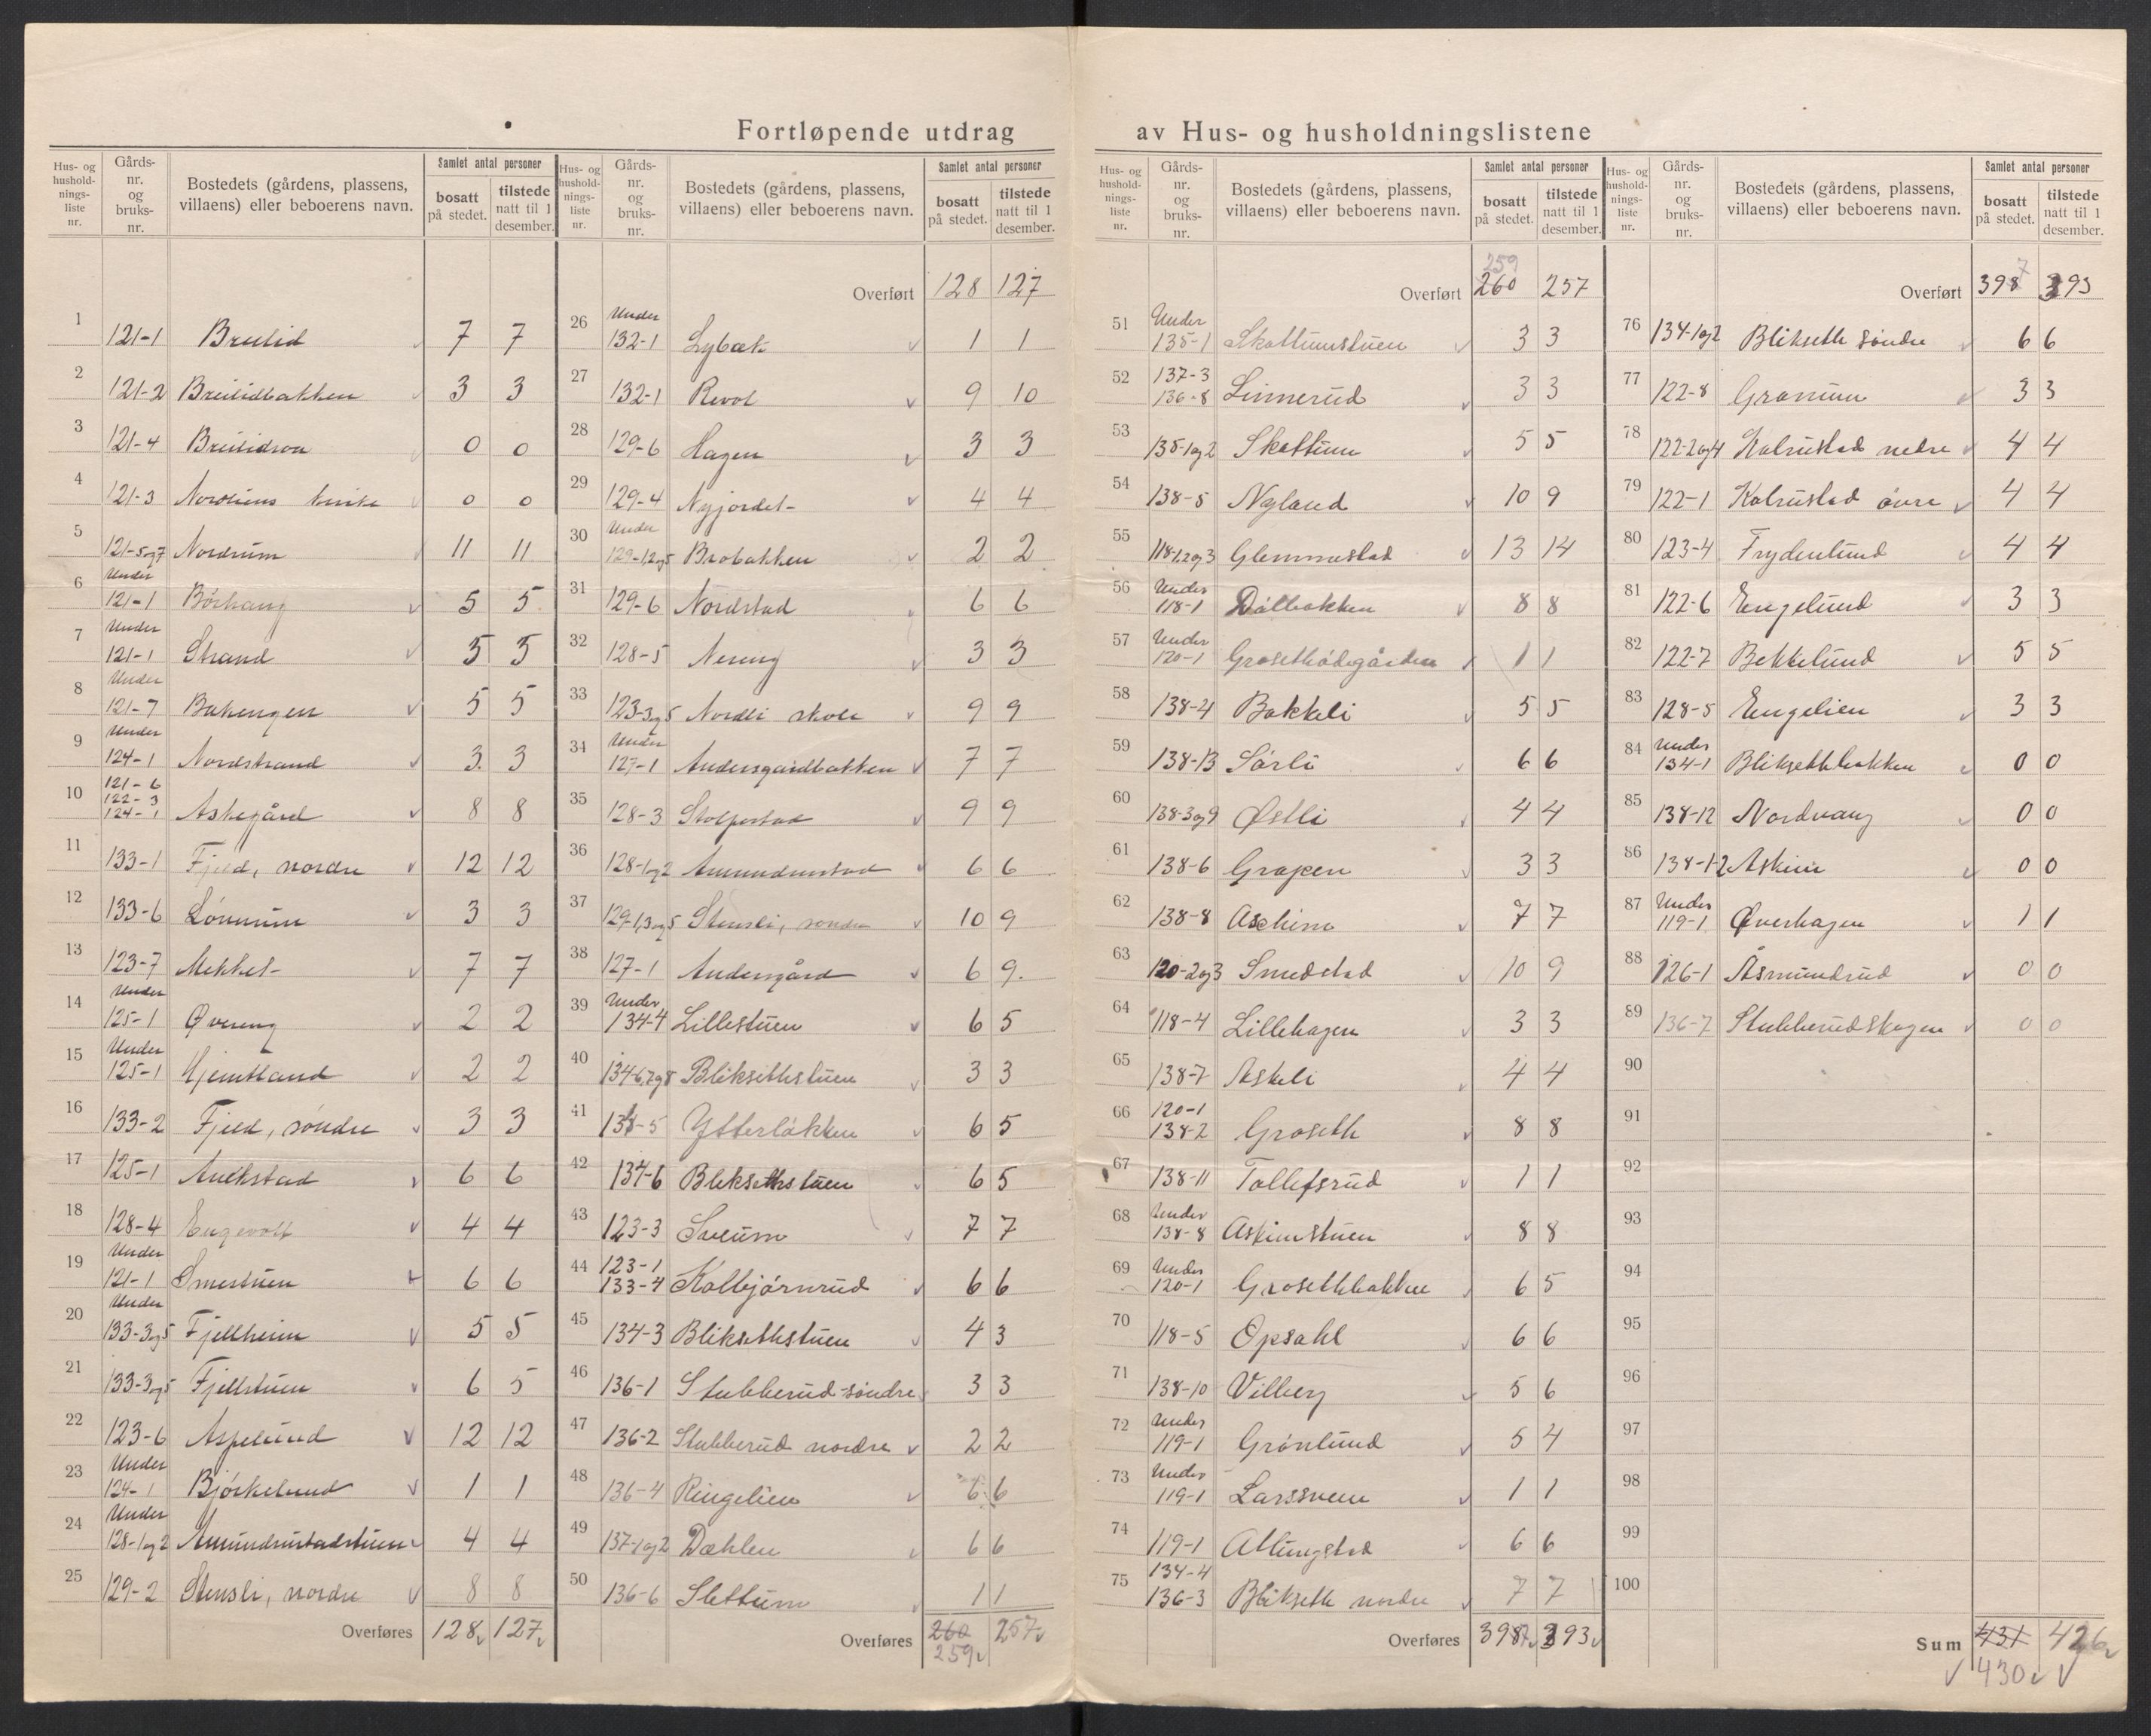 Fortløpende utdrag av Hus- og husholdningslistene
Hus- og husholdnings-liste nr. | Gårds-nr. og bruks-nr. | Bostedets (gårdens, plassens, villaens) eller beboerens navn. | Samlet antal personer | bosatt på stedet. | tilstede natt til 1 desember.
1 121-1 Breilid 7 7
2 121-2 Breilidbakken 3 3
3 121-4 Breilidroa 0 0
4 121-3 Nordrums 0 0
5 121-5og7 Nordrum 11 11
6 Under 121-1 Börhaug 5 5
7 Under 121-1 Strand 5 5
8 Under 121-7 Bakengen 5 5
9 Under 124-1 Nordstrand 3 3
10 121-6 122-3 124-1 Askegård 8 8
11 133-1 Fjeld, nordre 12 12
12 133-6 Lönnum 3 3
13 123-7 Mekkel 7 7
14 Under 125-1 Øvereng 2 2
15 Under 125-1 Hjemstrand 2 2
16 133-2 Fjeld, söndre 3 3
17 125-1 Aukstad 6 6
18 128-4 Engevolt 4 4
19 Under 121-1 Smestuen 6 6
20 Under 133-3og5 Fjellheim 5 5
21 133-3og5 Fjellstuen 6 5
22 123-6 Aspelund 12 12
23 Under 124-1 Björkelund 1 1
24 Under 128-1og2 Amundrustadstuen 4 4
25 129-2 Stensli, nordre 8 8
Overføres 128 127
Hus- og husholdnings-liste nr. | Gårds-nr. og bruks-nr. | Bostedets (gårdens, plassens, villaens) eller beboerens navn. | Samlet antal personer | bosatt på stedet. | tilstede natt til 1 desember.
Overført 128 127
26 Under 132-1 Lybæk 1 1
27 132-1 Revol 9 10
28 129-6 Hagen 3 3
29 129-4 Nyjordet 4 4
30 Under 129-1,2og5 Brobakken 2 2
31 129-6 Nordstad 6 6
32 128-5 Nereng 3 3
33 123-3og5 Nordli skole 9 9
34 Under 127-1 Andersgardbakken 7 7
35 128-3 Stolpestad 9 9
36 128-1og2 Amundrustad 6 6
37 129-1,3og5 Stensli, söndre 10 9
38 127-1 Andersgård 6 9
39 Under 134-4 Lillestuen 6 5
40 134-6,7og8 Bliksethstuen 3 3
41 134-5 Ytterlökken 6 5
42 134-6 Bleksethstuen 6 5
43 123-3 Sveum 7 7
44 123-1 133-4 Kolbjörnrud 6 6
45 134-3 Bliksethstuen 4 3
46 136-1 Stubberud söndre 3 3
47 136-2 Stubberud nordre 2 2
48 136-4 Ringelien 6 6
49 137-1og2 Dæhlen 6 6
50 136-6 Slettum 1 1
Overføres 260 257
259
Hus- og husholdnings-liste nr. | Gårds-nr. og bruks-nr. | Bostedets (gårdens, plassens, villaens) eller beboerens navn. | Samlet antal personer | bosatt på stedet. | tilstede natt til 1 desember.
259
Overført 260 257
51 Under 135-1 Skattumstuen 3 3
52 137-3 136-8 Linnerud 3 3
53 135-1og2 Skattum 5 5
54 138-5 Nyland 10 9
55 118-1,2og3 Glemmestad 13 14
56 Under 118-1 Dalbakken 8 8
57 Under 120-1 Grosethödegården 1 1
58 138-4 Bakkeli 5 5
59 138-13 Sörli 6 6
60 138-3og9 Østli 4 4
61 138-6 Grapen 3 3
62 138-8 Aschim 7 7
63 120-2og3 Smedstad 10 9
64 118-4 Lillehagen 3 3
65 138-7 Askeli 4 4
66 120-1 138-2 Groseth 8 8
67 138-11 Tollefsrud 1 1
68 Under 138-8 Askimstuen 8 8
69 Under 120-1 Grosethbakken 6 5
70 118-5 Opsahl 6 6
71 138-10 Vilberg 5 6
72 Under 119-1 Grönlund 5 4
73 Under 119-1 Larssveen 1 1
74 119-1 Allungstad 6 6
75 134-4 136-3 Blikseth nordre 7 7
Overføres 397 393
Hus- og husholdnings-liste nr. | Gårds-nr. og bruks-nr. | Bostedets (gårdens, plassens, villaens) eller beboerens navn. | Samlet antal personer | bosatt på stedet. | tilstede natt til 1 desember.
7
Overført 398 393
76 134-1og2 Blikseth söndre 6 6
77 122-8 Granum 3 3
78 122-2og4 Kalrustad nedre 4 4
79 122-1 Kalrustad övre 4 4
80 123-4 Frydenlund 4 4
81 122-6 Engelund 3 3
82 122-7 Bekkelund 5 5
83 128-5 Engelien 3 3
84 Under 134-1 Bliksethbakken 0 0
85 138-12 Nordvang 0 0
86 138-1-2 Askim 0 0
87 Under 119-1 Øverhagen 1 1
88 126-1 Åsmundrud 0 0
89 136-7 Stubberudskogen 0 0
90
91
92
93
94
95
96
97
98
99
100
Sum 431 426
430